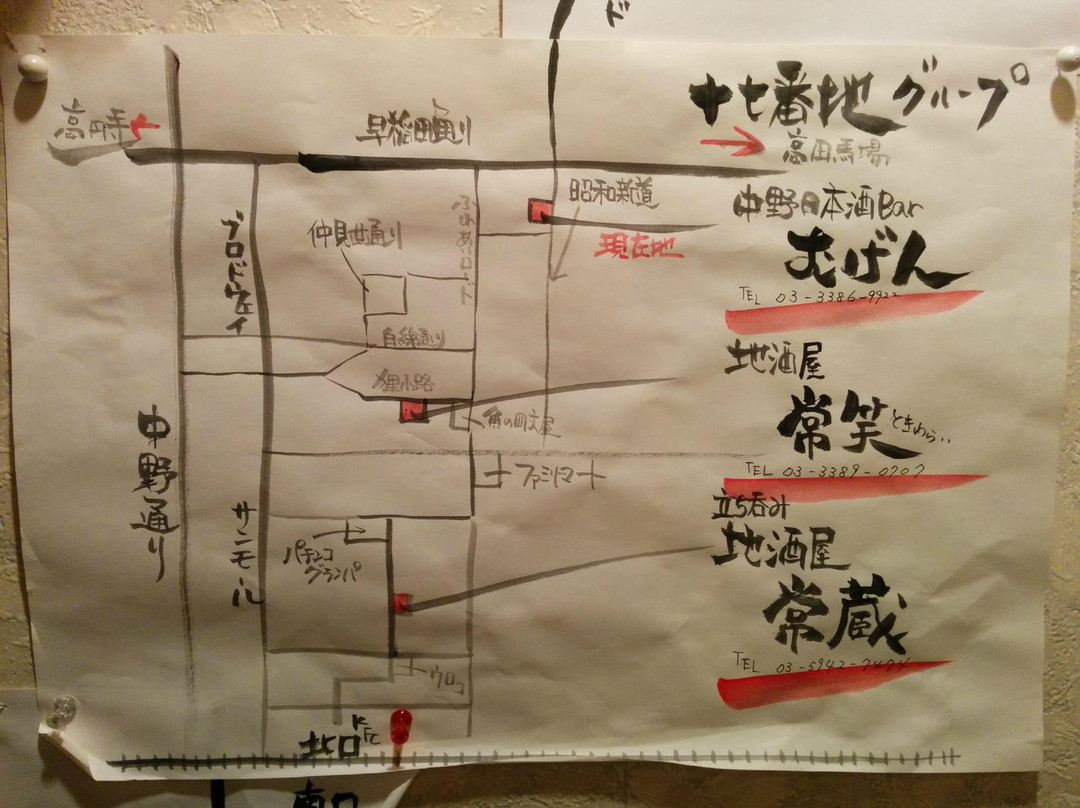 ド
十七番地グループ
高円寺
早稲田通り
高田馬場
昭和新道
現在地
中野日本酒Bar
むげん
TEL 03-3386-9922
ブロードウェイ
仲見世通り
ふれあいロード
白線通り
狸小路
地酒屋
常笑 ときわらい
TEL 03-3389-0707
魚の四文屋
ファミリーマート
中野通り
サンモール
パチンコ
グランパ
立ち呑み
地酒屋
常蔵
TEL 03-5942-7474
ウロコ
KFC
北口
南口